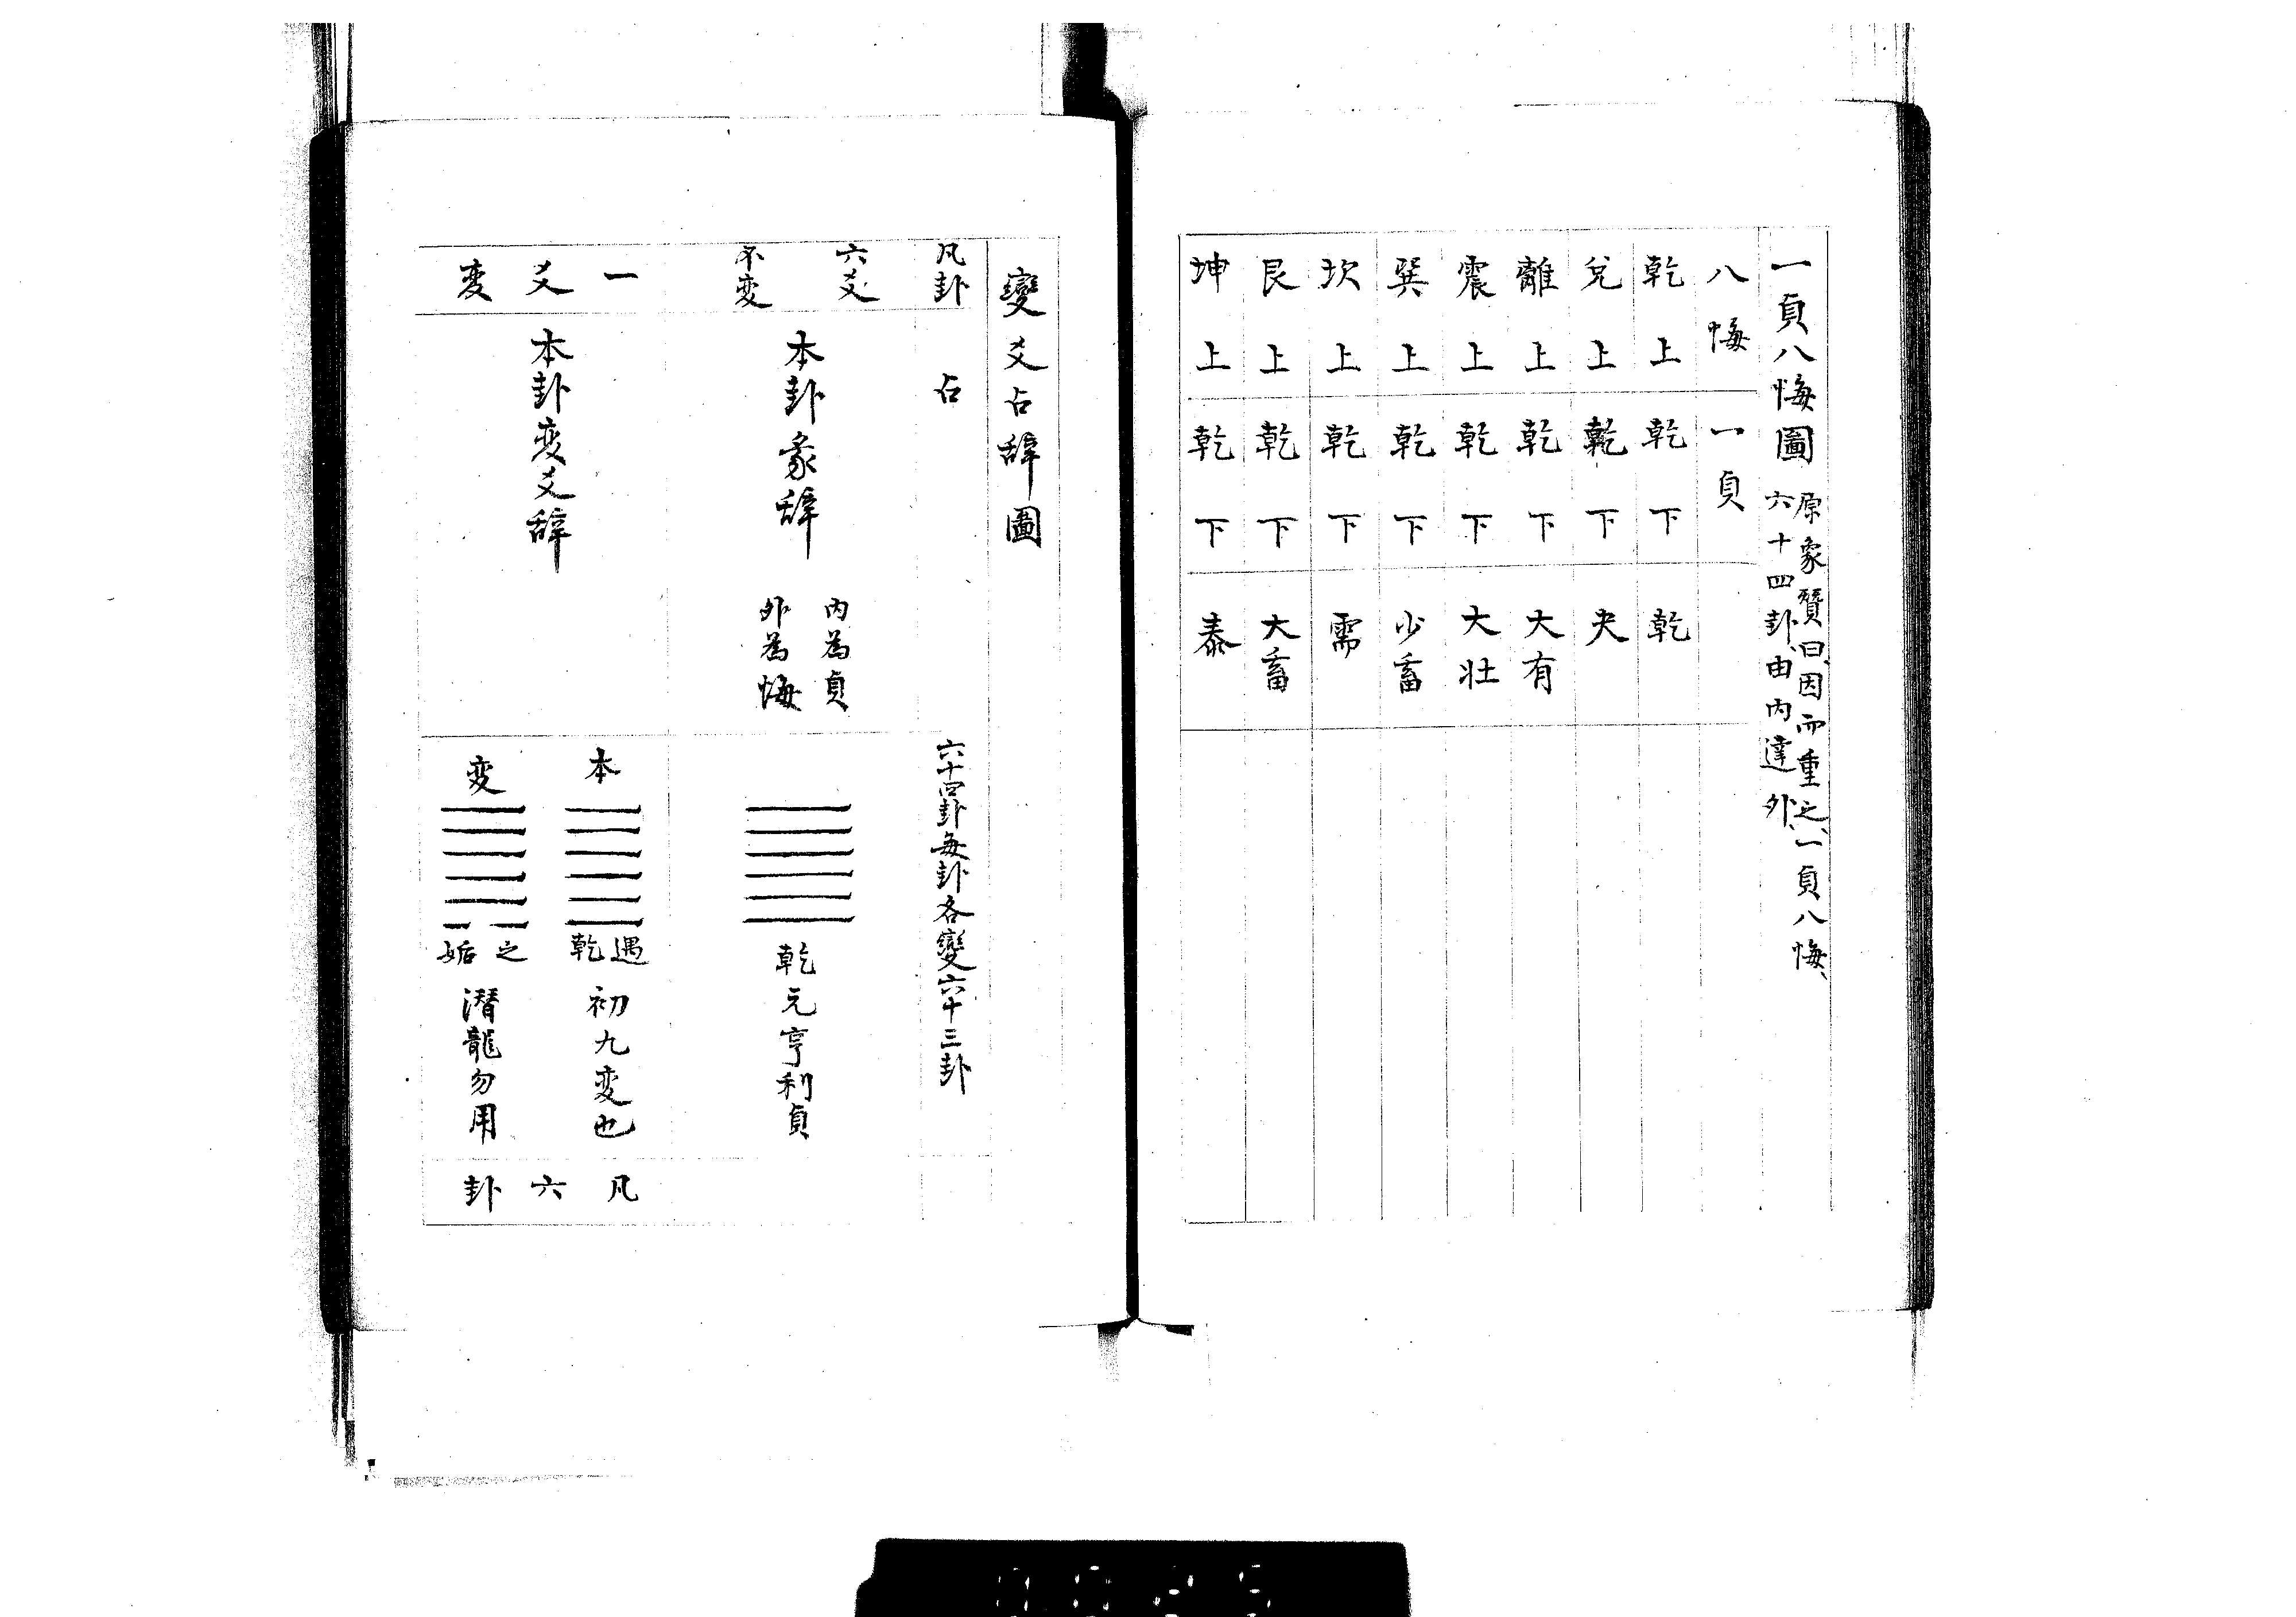 一貞八悔圖
原象贊曰、因而重之、一貞八悔、
六十四卦、由内達外、
八悔 一貞
乾上 乾下 乾
兌上 乾下 夬
離上 乾下 大有
震上 乾下 大壮
巽上 乾下 少畜
坎上 乾下 需
艮上 乾下 大畜
坤上 乾下 泰
變爻占辞圖
凡卦 占 六十四卦每卦各變六十三卦
六爻
不変
本卦彖辞
内為貞
外為悔
乾元亨利貞
一爻変
本卦変爻辞
本
遇乾
初九変也
変
之姤
潜龍勿用
凡六卦